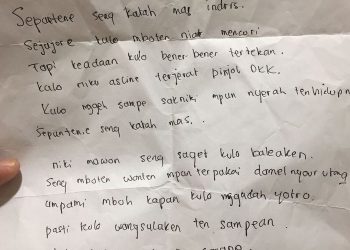 Sepuntene seng katah mas indris.
Sejajore kulo mboten niat mencuri
Tapi keadaan kulo bener-bener tertekan.
kalo niku asline terjerat pinjol DKK.
Kulo nggeh sampe sakniki mpun nyerah ten hidup
Sepunten.e seng katah mas,.
niki mawon seng saget kulo baleaken.
Seng mboten wonten mpun terpakai damel nyaur utang
umpami mboh kapan kulo nggadah yotro
pasti kulo wangsulaken ten sampean.